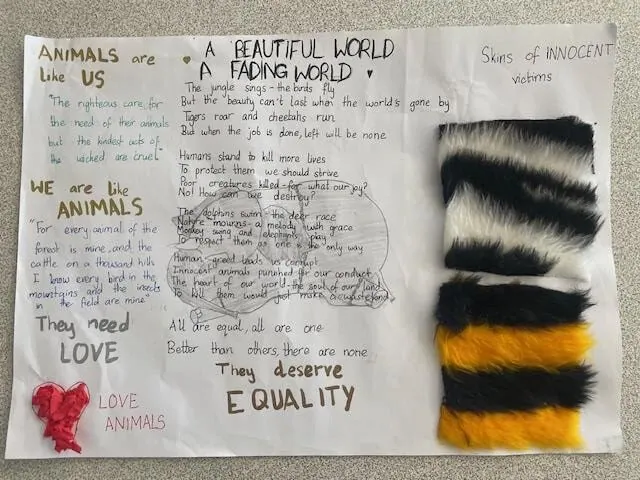 ANIMALS are
like US
"The righteous care for
the need of their animals
but the kindest acts of
the wicked are cruel"
WE are like
ANIMALS
"For every animal of the
forest is mine, and the
cattle on a thousand hills
I know every bird in the
mountains and the insects
in the field are mine"
They need
LOVE
LOVE
ANIMALS
A BEAUTIFUL WORLD
A FADING WORLD
The jungle sings - the birds fly
But the beauty can't last when the world's gone by
Tigers roar and cheetahs run
But when the job is done, left will be none
Humans stand to kill more lives
To protect them we should strive
Poor creatures killed - for what our joy?
No! How can we destroy?
The dolphins swim - the deer race
Nature mourns - a melody with grace
Monkey swing and elephants play
To respect them as one is the only way
Human greed leads us corrupt
Innocent animals punished for our conduct
The heart of our world - the soul of our land
To kill them would just make a wasteland
All are equal, all are one
Better than others, there are none
They deserve
EQUALITY
Skins of INNOCENT
victims